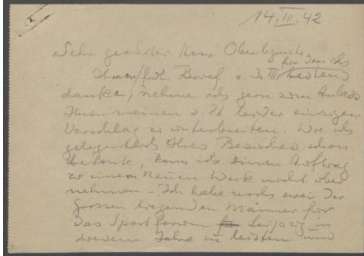 14. III. 42
Sehr geehrter Herr
für den ich
Ihnen frdl. Brief v. 3. III bestens
danke, nehme ich gern zum Anlass
Ihnen meinen v. Zt. leider einzigen
Vorschlag zu unterbreiten. Wie ich
gelegentlich Ihres Besuches schon
betonte, kann ich einen Auftrag
zu einem neuen Werk nicht über
nehmen. - Ich habe noch zwei der
grossen liegenden Männer für
das Sportforum Leipzig in
diesem Jahr zu leisten und